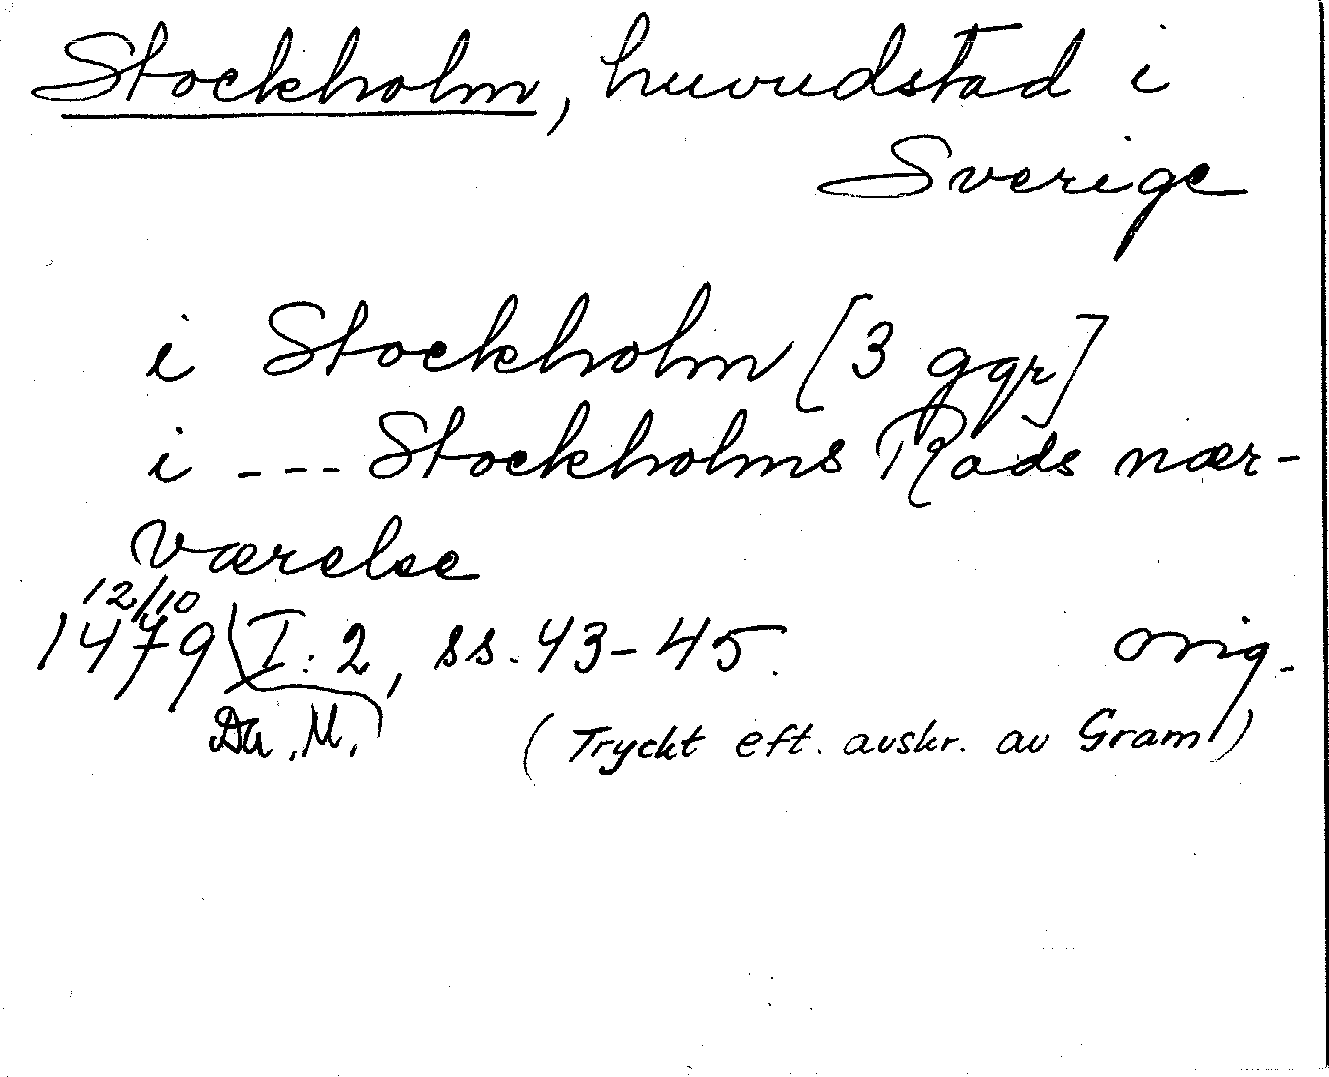 Stockholm, huvudstad i
Sverige
i Stockholm [3 ggr]
i --- Stockholms Rads nær-
værelse
12/10
1479 I:2, ss. 43-45. orig.
Da. M. (Tryckt eft. avskr. av Gram)